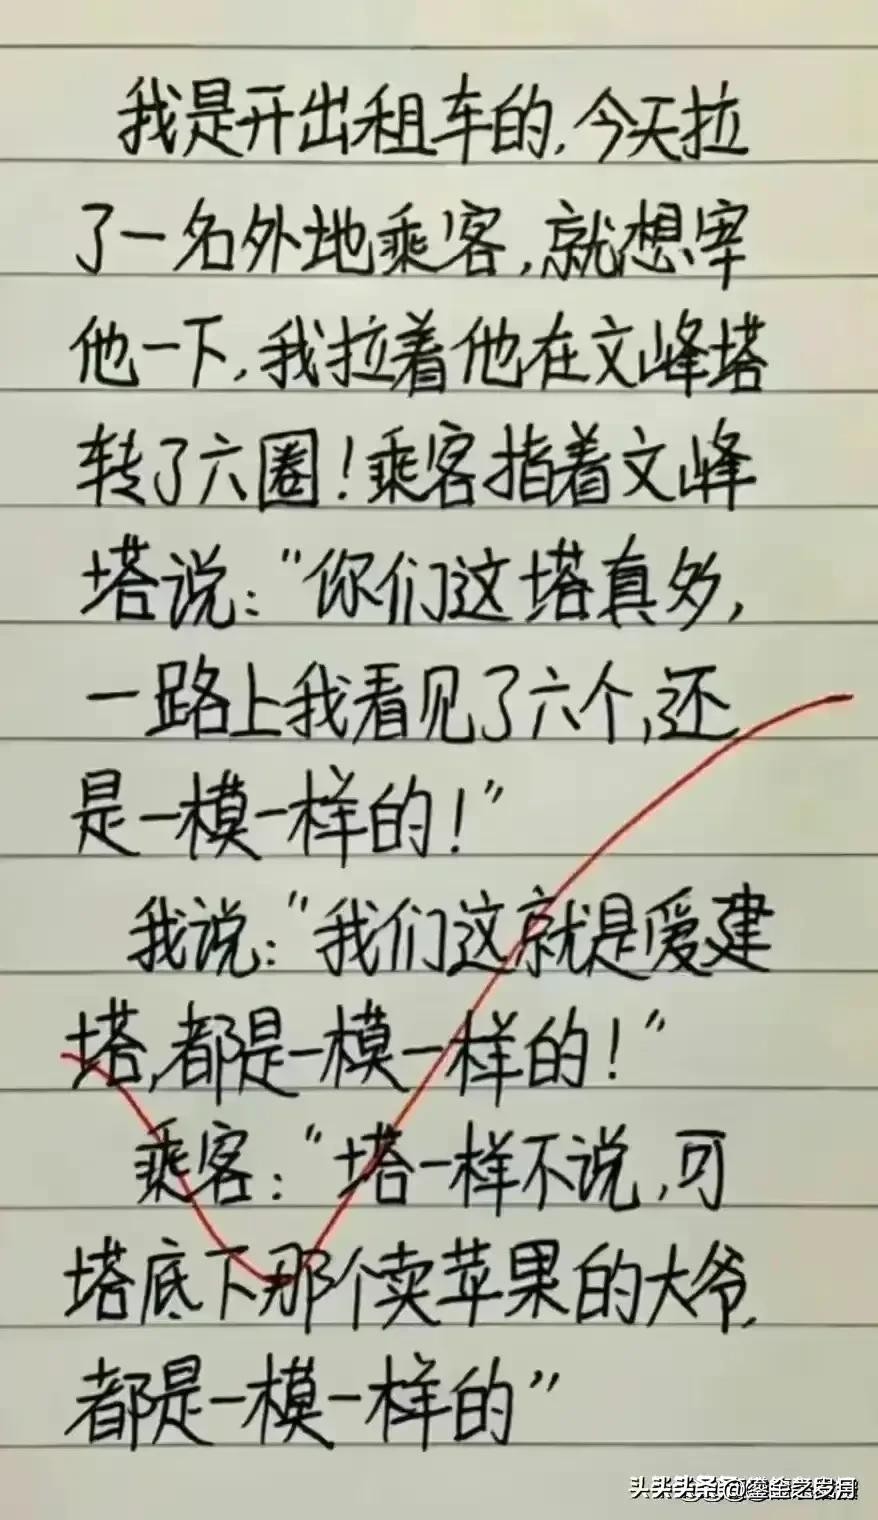 我是开出租车的，今天拉
了一名外地乘客，就想宰
他一下，我拉着他在文峰塔
转了六圈！乘客指着文峰
塔说：“你们这塔真多，
一路上我看见了六个，还
是一模一样的！”
我说：“我们这就是爱建
塔，都是一模一样的！”
乘客：“塔一样不说，可
塔底下那个卖苹果的大爷，
都是一模一样的”
头条